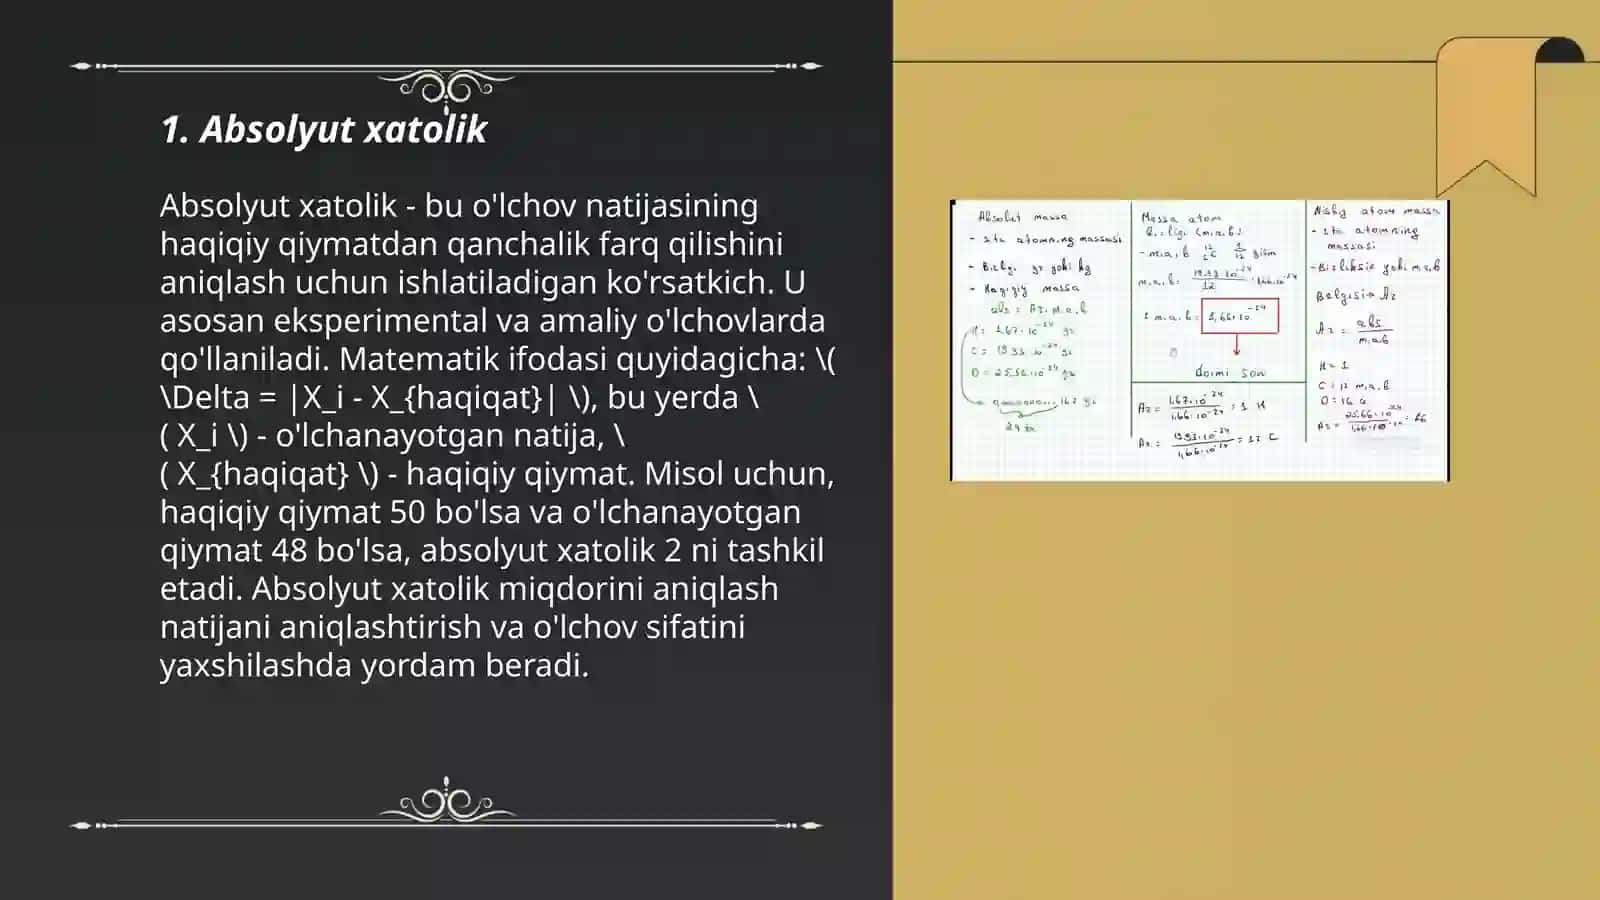 1. Absolyut xatolik
Absolyut xatolik - bu o'lchov natijasining
haqiqiy qiymatdan qanchalik farq qilishini
aniqlash uchun ishlatiladigan ko'rsatkich. U
asosan eksperimental va amaliy o'lchovlarda
qo'llaniladi. Matematik ifodasi quyidagicha: \(
\Delta = |X_i - X_{haqiqat}| \), bu yerda \
( X_i \) - o'lchanayotgan natija, \
( X_{haqiqat} \) - haqiqiy qiymat. Misol uchun,
haqiqiy qiymat 50 bo'lsa va o'lchanayotgan
qiymat 48 bo'lsa, absolyut xatolik 2 ni tashkil
etadi. Absolyut xatolik miqdorini aniqlash
natijani aniqlashtirish va o'lchov sifatini
yaxshilashda yordam beradi.
Absolut massa
- 1ta atomning massasi
- Haqiqiy massa
abs = Az. m.a.b
H = 1,67·10⁻²⁴ gr
Massa atom
1 m.a.b = 1,66·10⁻²⁴
doimi son
Az = 1,67·10⁻²⁴ / 1,66·10⁻²⁴ = 1 H
Nisbiy atom massa
- 1ta atomning
massasi
Belgisi → Az
Az = abs / m.a.b
H = 1
C = 12 m.a.b